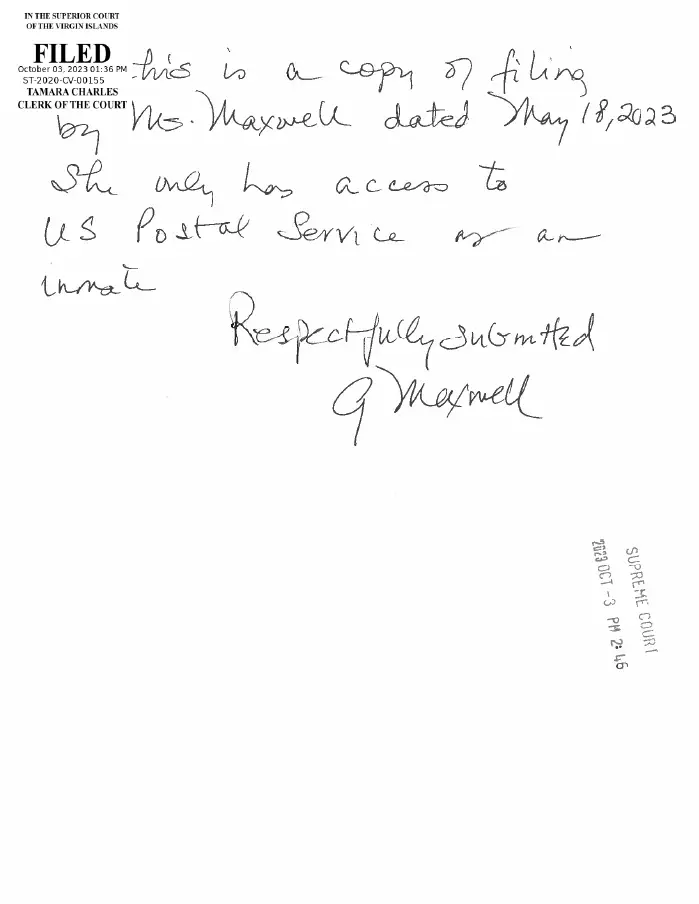 IN THE SUPERIOR COURT
OF THE VIRGIN ISLANDS
FILED
October 03, 2023 01:36 PM
ST-2020-CV-00155
TAMARA CHARLES
CLERK OF THE COURT
this is a copy of filing
by Ms. Maxwell dated May 18, 2023
She only has access to
US Postal Service as an
inmate
Respectfully submitted
G Maxwell
SUPREME COURT
2023 OCT -3 PM 2:46